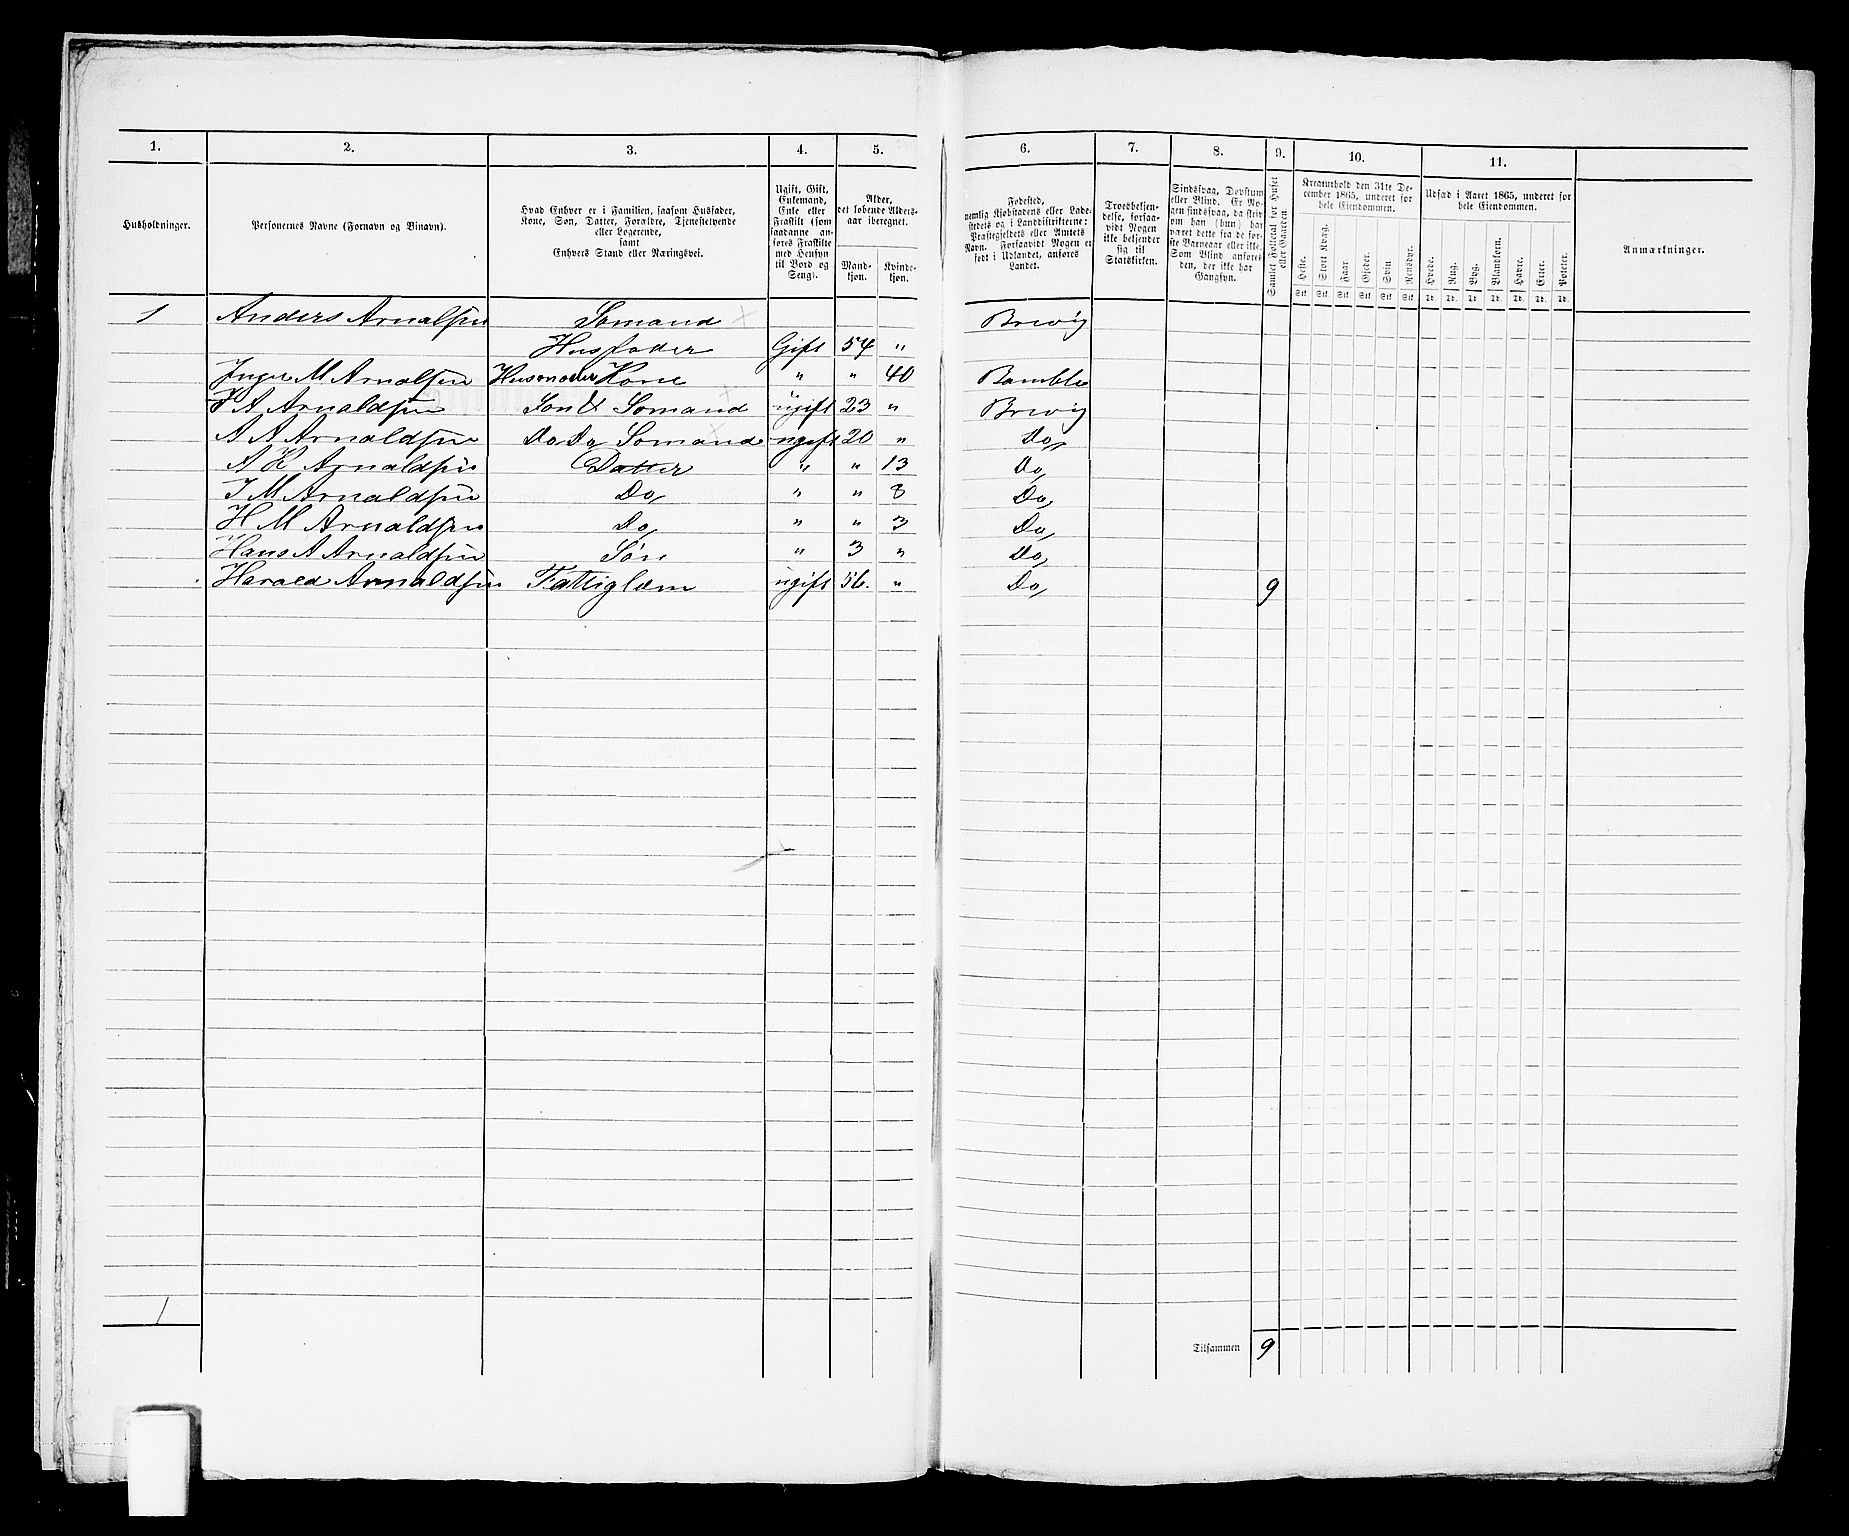 1. 2. 3. 4. 5. 6. 7. 8. 9. 10. 11.
Husholdninger.
Personernes Navne (Fornavn og Binavn).
Hvad Enhver er i Familien, saasom Husfader,
Kone, Søn, Datter, Forældre, Tjenestetyende
eller Logerende,
samt
Enhvers Stand eller Næringsvei.
Ugift, Gift,
Enkemand,
Enke eller
Fraskilt (som
saadanne an-
føres Fraskilte
med Hensyn
til Bord og
Seng).
Alder,
det løbende Alders-
aar iberegnet.
Mand-
kjøn.
Kvinde-
kjøn.
Fødested,
nemlig Kjøbstadens eller Lade-
stedets og i Landdistrikterne:
Præstegjeldets eller Amtets
Navn. Forsaavidt Nogen er
født i Udlandet, anføres
Landet.
Troesbekjen-
delse, forsaa-
vidt Nogen
ikke bekjender
sig til
Statskirken.
Sindssvag, Døvstum
eller Blind. Er No-
gen sindssvag, da skriv
om han (hun) har
været dette fra de før-
ste Barneaar eller ikke.
Som Blind anføres
den, der ikke har
Gangsyn.
Samlet Folketal for Huset
eller Gaarden.
Kreaturhold den 31te De-
cember 1865, underet for
hele Eiendommen.
Heste. Stort Kvæg. Faar. Gjeder. Svin Rensdyr.
Stk Stk Stk Stk Stk Stk
Udsæd i Aaret 1865, underet for
hele Eiendommen.
Hvede. Rug. Byg. Blandkorn. Havre. Erter. Poteter.
Td. Td. Td. Td. Td. Td. Td.
Anmærkninger.
1 Anders Arnalsen Sømand Brevig
Husfader Gift 54 "
Inger M Arnalsen Husmoder Kone " " 40 Bamble
A Arnaldsen Søn & Sømand ugift 23 " Brevig
A A Arnaldsen Do Do Sømand ugift 20 " Do,
A K Arnaldsen Datter " " 13 Do,
I M Arnaldsen Do, " " 8 Do,
H M Arnaldsen Do, " " 3 Do,
Hans A Arnaldsen Søn " 3 " Do,
Harald Arnaldsen Fattiglem ugift 56. " Do, 9
1
Tilsammen 9